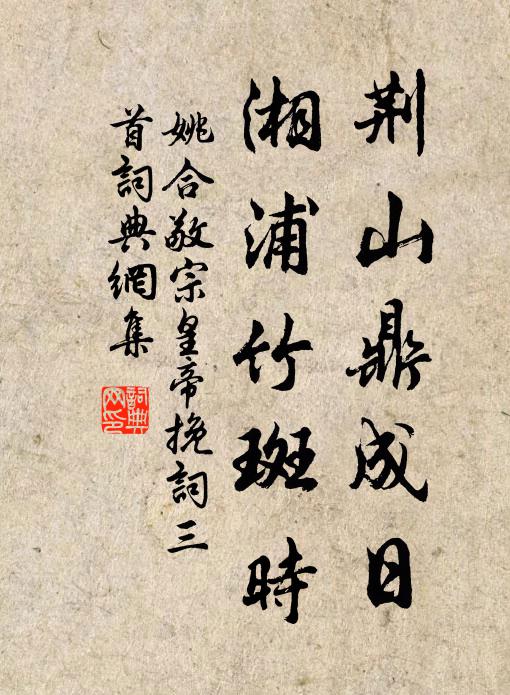 荆山鼎成日
湘浦竹斑時
姚合敬宗皇帝挽詞三
首詞典網集
詞典
网印